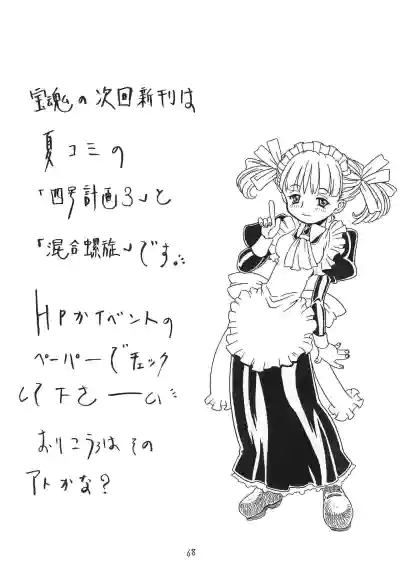 宝魂の次回新刊は
夏コミの
「四号計画3」と
「混合螺旋」です。
HPかイベントの
ペーパーでチェック
して下さーい
おりこうはその
アトかな?
68